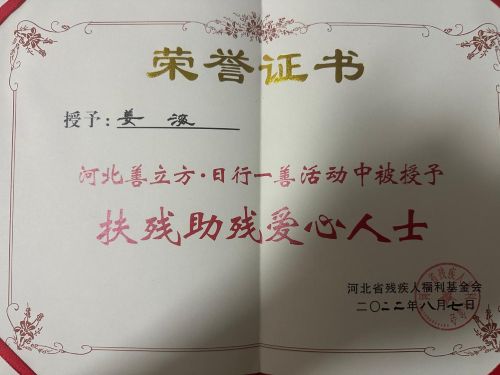 荣誉证书
授予：姜
河北善立方·日行一善活动中被授予
扶残助残爱心人士
河北省残疾人福利基金会
二〇二二年八月七日